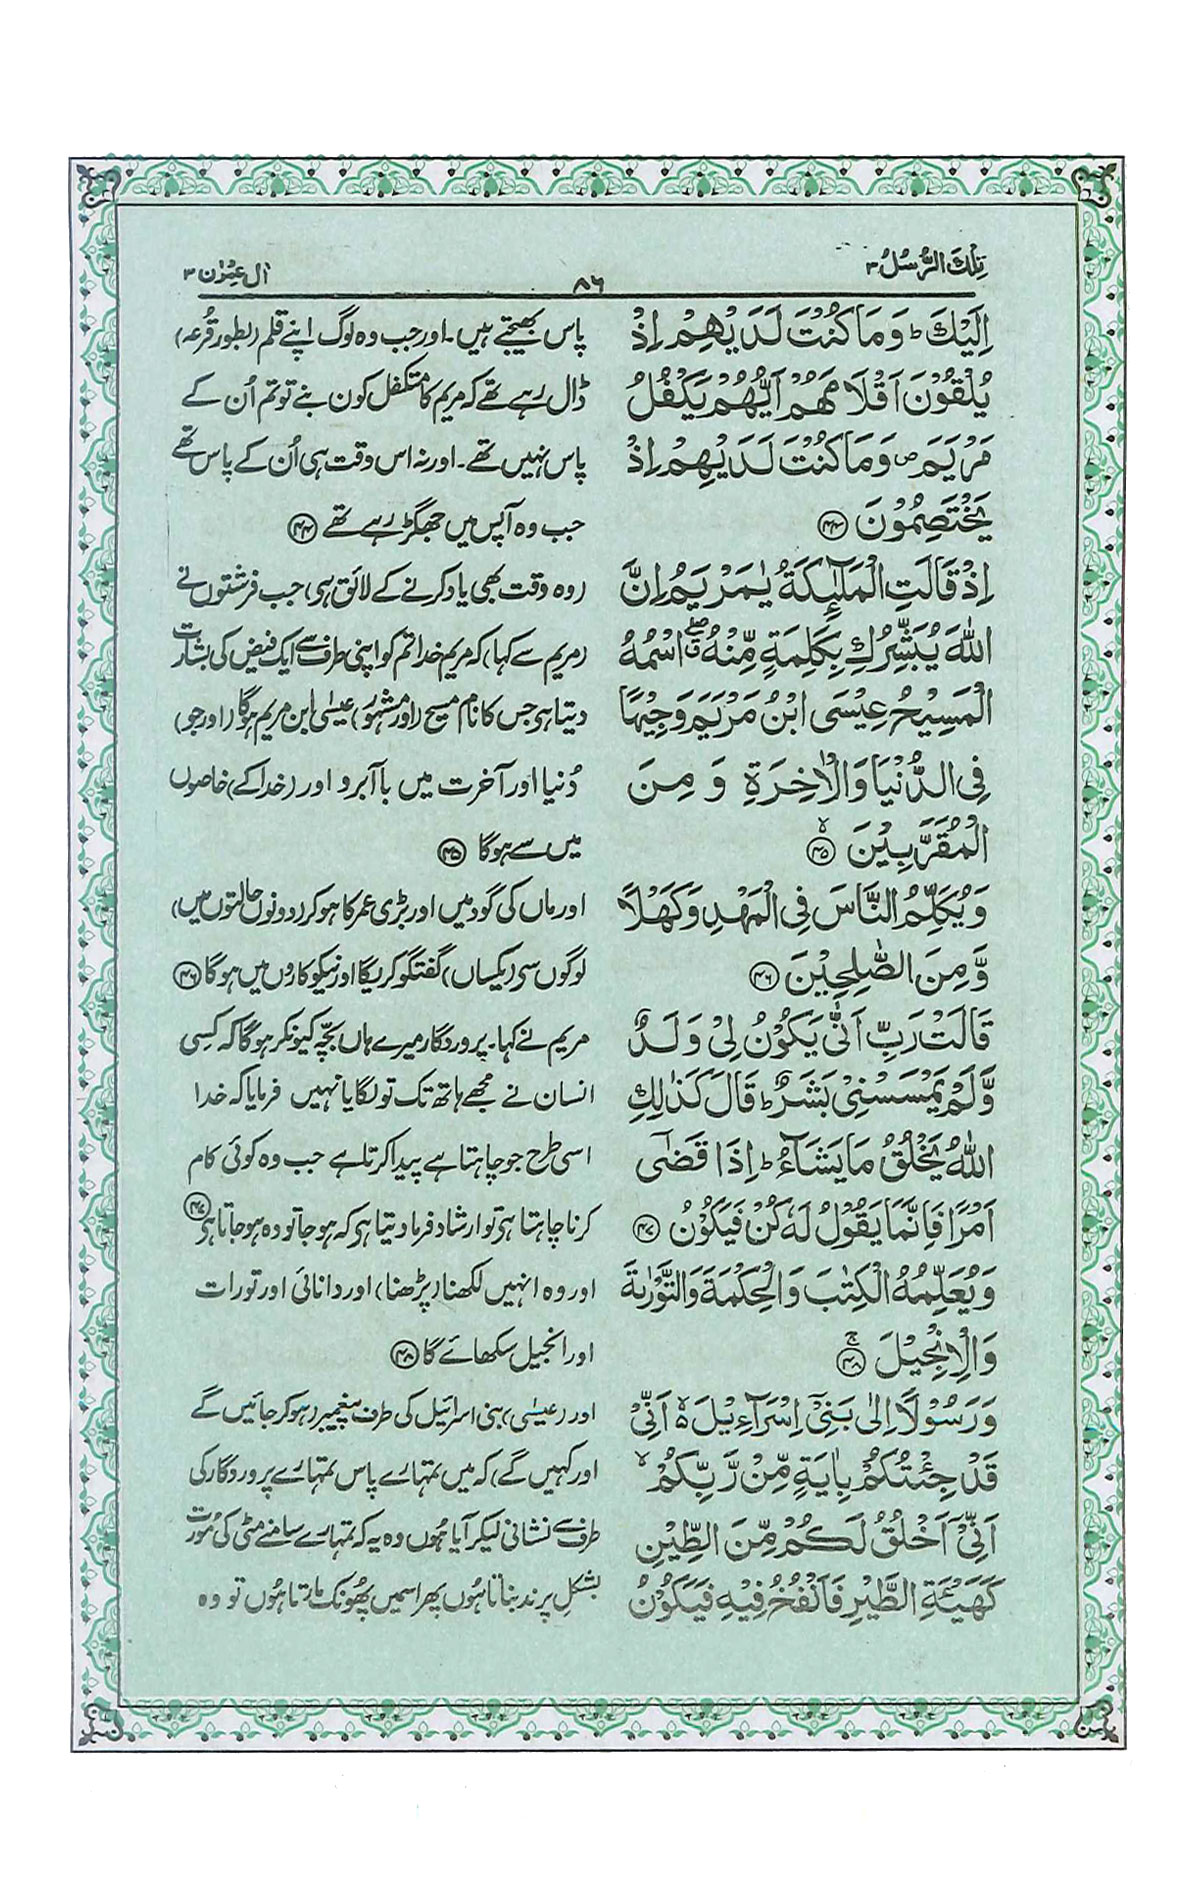 تِلْكَ الرُّسُلُ ٣
٨٦
اٰل عِمْرٰن ٣
اِلَيْكَ ؕ وَمَا كُنْتَ لَدَيْهِمْ اِذْ
يُلْقُوْنَ اَقْلَامَهُمْ اَيُّهُمْ يَكْفُلُ
مَرْيَمَ ۪ وَمَا كُنْتَ لَدَيْهِمْ اِذْ
يَخْتَصِمُوْنَ ﴿۴۴﴾
اِذْ قَالَتِ الْمَلٰٓئِكَةُ يٰمَرْيَمُ اِنَّ
اللّٰهَ يُبَشِّرُكِ بِكَلِمَةٍ مِّنْهُ ۖۗ اسْمُهُ
الْمَسِيْحُ عِيْسَى ابْنُ مَرْيَمَ وَجِيْهًا
فِى الدُّنْيَا وَالْاٰخِرَةِ وَ مِنَ
الْمُقَرَّبِيْنَ ﴿۴۵﴾ۙ
وَيُكَلِّمُ النَّاسَ فِى الْمَهْدِ وَكَهْلًا
وَّمِنَ الصّٰلِحِيْنَ ﴿۴۶﴾
قَالَتْ رَبِّ اَنّٰى يَكُوْنُ لِىْ وَلَدٌ
وَّلَمْ يَمْسَسْنِىْ بَشَرٌ ؕ قَالَ كَذٰلِكِ
اللّٰهُ يَخْلُقُ مَا يَشَآءُ ؕ اِذَا قَضٰٓى
اَمْرًا فَاِنَّمَا يَقُوْلُ لَهٗ كُنْ فَيَكُوْنُ ﴿۴۷﴾
وَيُعَلِّمُهُ الْكِتٰبَ وَالْحِكْمَةَ وَالتَّوْرٰىةَ
وَالْاِنْجِيْلَ ﴿۴۸﴾ۚ
وَرَسُوْلًا اِلٰى بَنِىْٓ اِسْرَآءِيْلَ ۙ اَنِّىْ
قَدْ جِئْتُكُمْ بِاٰيَةٍ مِّنْ رَّبِّكُمْ ۙ
اَنِّىْٓ اَخْلُقُ لَكُمْ مِّنَ الطِّيْنِ
كَهَيْئَةِ الطَّيْرِ فَاَنْفُخُ فِيْهِ فَيَكُوْنُ
پاس بھیجتے ہیں۔ اور جب وہ لوگ اپنے قلم (بطور قُرعہ)
ڈال رہے تھے کہ مریم کا متکفل کون بنے تو تم اُن کے
پاس نہیں تھے۔ اور نہ اس وقت ہی اُن کے پاس تھے
جب وہ آپس میں جھگڑ رہے تھے ﴿۴۴﴾
(وہ وقت بھی یاد کرنے کے لائق ہی) جب فرشتوں نے
(مریم سے کہا) کہ مریم خدا تم کو اپنی طرف سے ایک فیض کی بشارت
دیتا ہی جس کا نام مسیح (اور مشہور) عیسٰی ابن مریم ہوگا (اور جو)
دُنیا اور آخرت میں باآبرو اور (خدا کے) خاصوں
میں سے ہوگا ﴿۴۵﴾
اور ماں کی گود میں اور بڑی عمر کا ہو کر (دونوں حالتوں میں)
لوگوں سی (یکساں) گفتگو کریگا اور نیکو کاروں میں ہوگا ﴿۴۶﴾
مریم نے کہا۔ پروردگار میرے ہاں بچّہ کیونکر ہوگا کہ کسی
انسان نے مجھے ہاتھ تک تو لگایا نہیں فرمایا کہ خدا
اسی طرح جو چاہتا ہے پیدا کرتا ہے جب وہ کوئی کام
کرنا چاہتا ہی تو ارشاد فرما دیتا ہی کہ ہو جا تو وہ ہو جاتا ہی ﴿۴۷﴾
اور وہ انہیں لکھنا (پڑھنا) اور دانائی اور تورات
اور انجیل سکھائے گا ﴿۴۸﴾
اور (عیسٰی) بنی اسرائیل کی طرف پیغمبر (ہو کر جائیں گے
اور کہیں گے) کہ میں تمہارے پاس تمہارے پروردگار کی
طرف سے نشانی لیکر آیا ہُوں وہ یہ کہ تمہارے سامنے مٹی کی مُورت
بشکلِ پرند بناتا ہُوں پھر اسمیں پھُونک مارتا ہُوں تو وہ